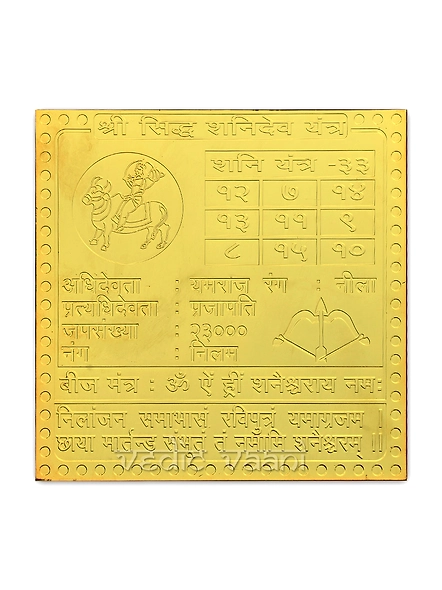 श्री सिद्ध शनिदेव यंत्र
शनि यंत्र -३३
१२ ७ १४
१३ ११ ९
८ १५ १०
अधिदेवता : यमराज रंग : नीला
प्रत्यधिदेवता : प्रजापति
जापसंख्या : २३०००
नंग : निलम
बीज मंत्र : ॐ ऐं ह्रीं शनैश्चराय नमः
निलांजन समाभासं रविपुत्रं यमाग्रजम् ।
छाया मार्तन्ड संभुतं तं नमामि शनैश्चरम् ॥
Vedic Vaani